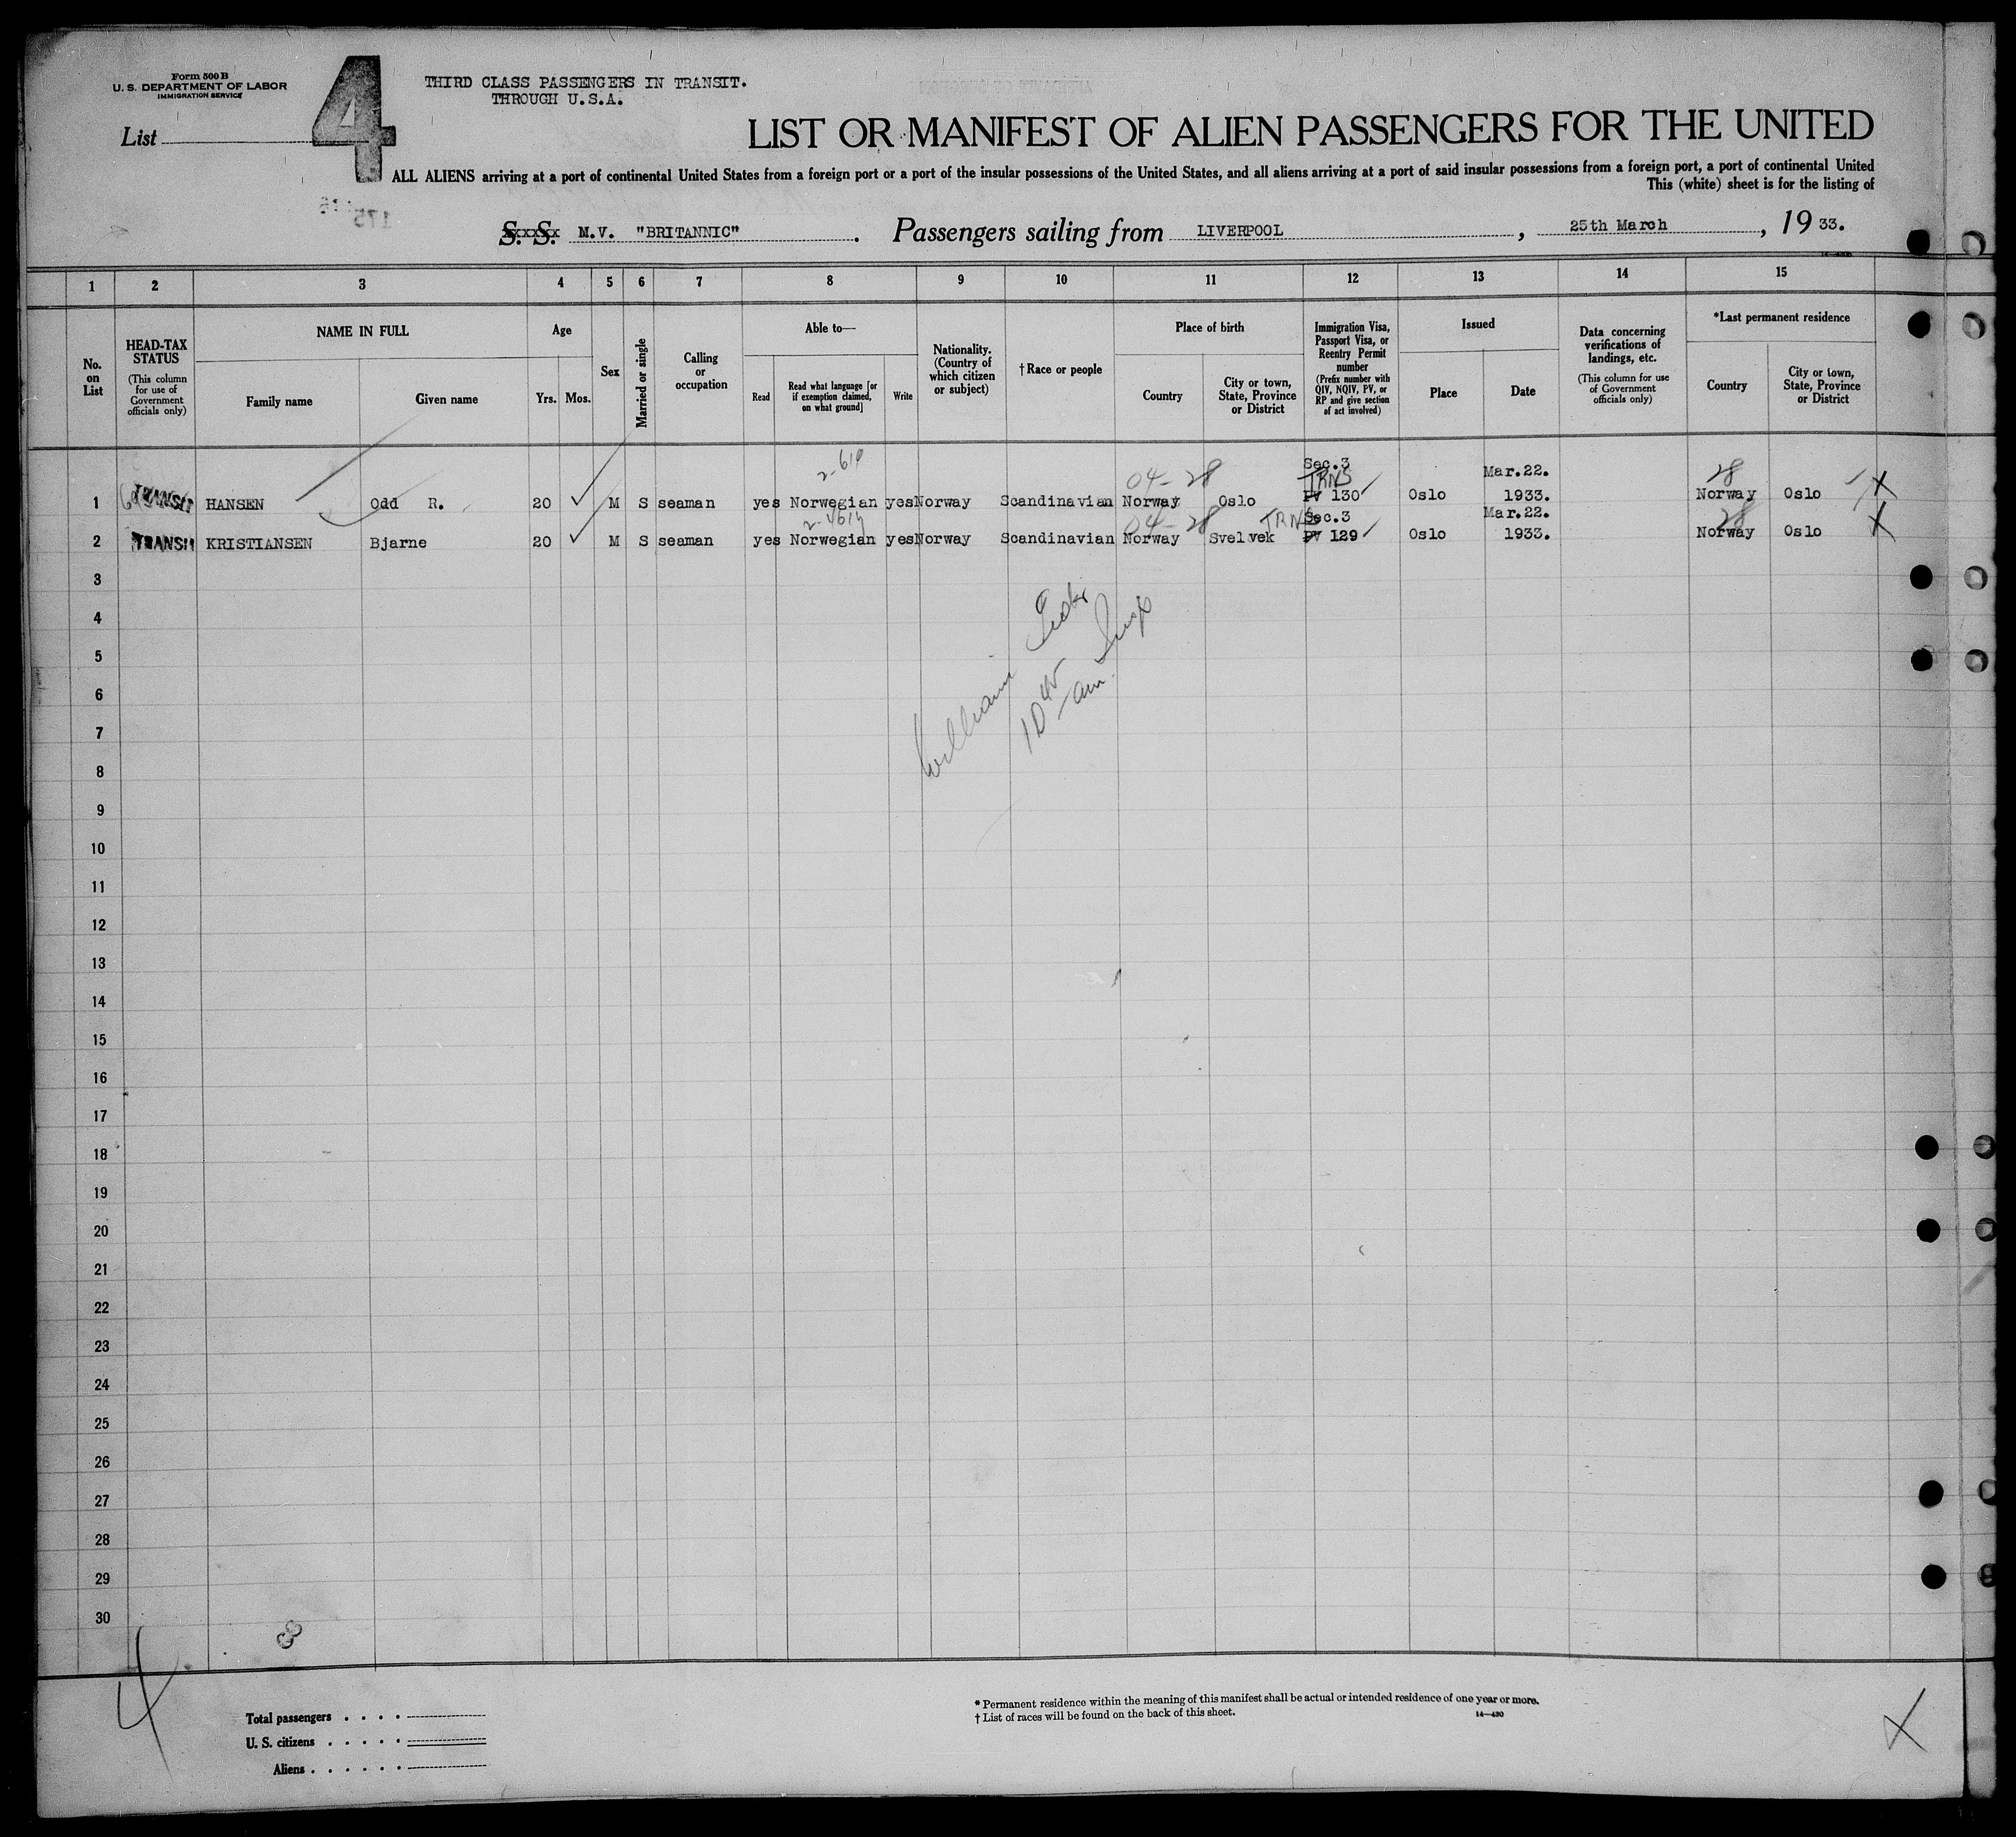 Form 500 B
U. S. DEPARTMENT OF LABOR
IMMIGRATION SERVICE
List 4
THIRD CLASS PASSENGERS IN TRANSIT.
THROUGH U.S.A.
LIST OR MANIFEST OF ALIEN PASSENGERS FOR THE UNITED
ALL ALIENS arriving at a port of continental United States from a foreign port or a port of the insular possessions of the United States, and all aliens arriving at a port of said insular possessions from a foreign port, a port of continental United
This (white) sheet is for the listing of
S. S. M.V. "BRITANNIC". Passengers sailing from LIVERPOOL, 25th March, 19 33.
1 2 3 4 5 6 7 8 9 10 11 12 13 14 15
No. on List
HEAD-TAX STATUS
(This column for use of Government officials only)
NAME IN FULL
Family name
Given name
Age
Yrs. Mos.
Sex
Married or single
Calling or occupation
Able to—
Read
Read what language [or if exemption claimed, on what ground]
Write
Nationality. (Country of which citizen or subject)
†Race or people
Place of birth
Country
City or town, State, Province or District
Immigration Visa, Passport Visa, or Reentry Permit number
(Prefix number with QIV, NQIV, PV, or RP and give section of act involved)
Issued
Place
Date
Data concerning verifications of landings, etc.
(This column for use of Government officials only)
*Last permanent residence
Country
City or town, State, Province or District
04-28 Sec.3 TRNS Mar.22. 28
1 TRANSIT HANSEN Odd R. 20 M S seaman yes Norwegian yes Norway Scandinavian Norway Oslo PV 130 Oslo 1933. Norway Oslo X
04-28 TRNS Sec.3 Mar.22. 28
2 TRANSIT KRISTIANSEN Bjarne 20 M S seaman yes Norwegian yes Norway Scandinavian Norway Svelvek PV 129 Oslo 1933. Norway Oslo X
3
4
5
6
William
10 45 am
7
8
9
10
11
12
13
14
15
16
17
18
19
20
21
22
23
24
25
26
27
28
29
30
4
Total passengers
U. S. citizens
Aliens
* Permanent residence within the meaning of this manifest shall be actual or intended residence of one year or more.
† List of races will be found on the back of this sheet.
14—430
X